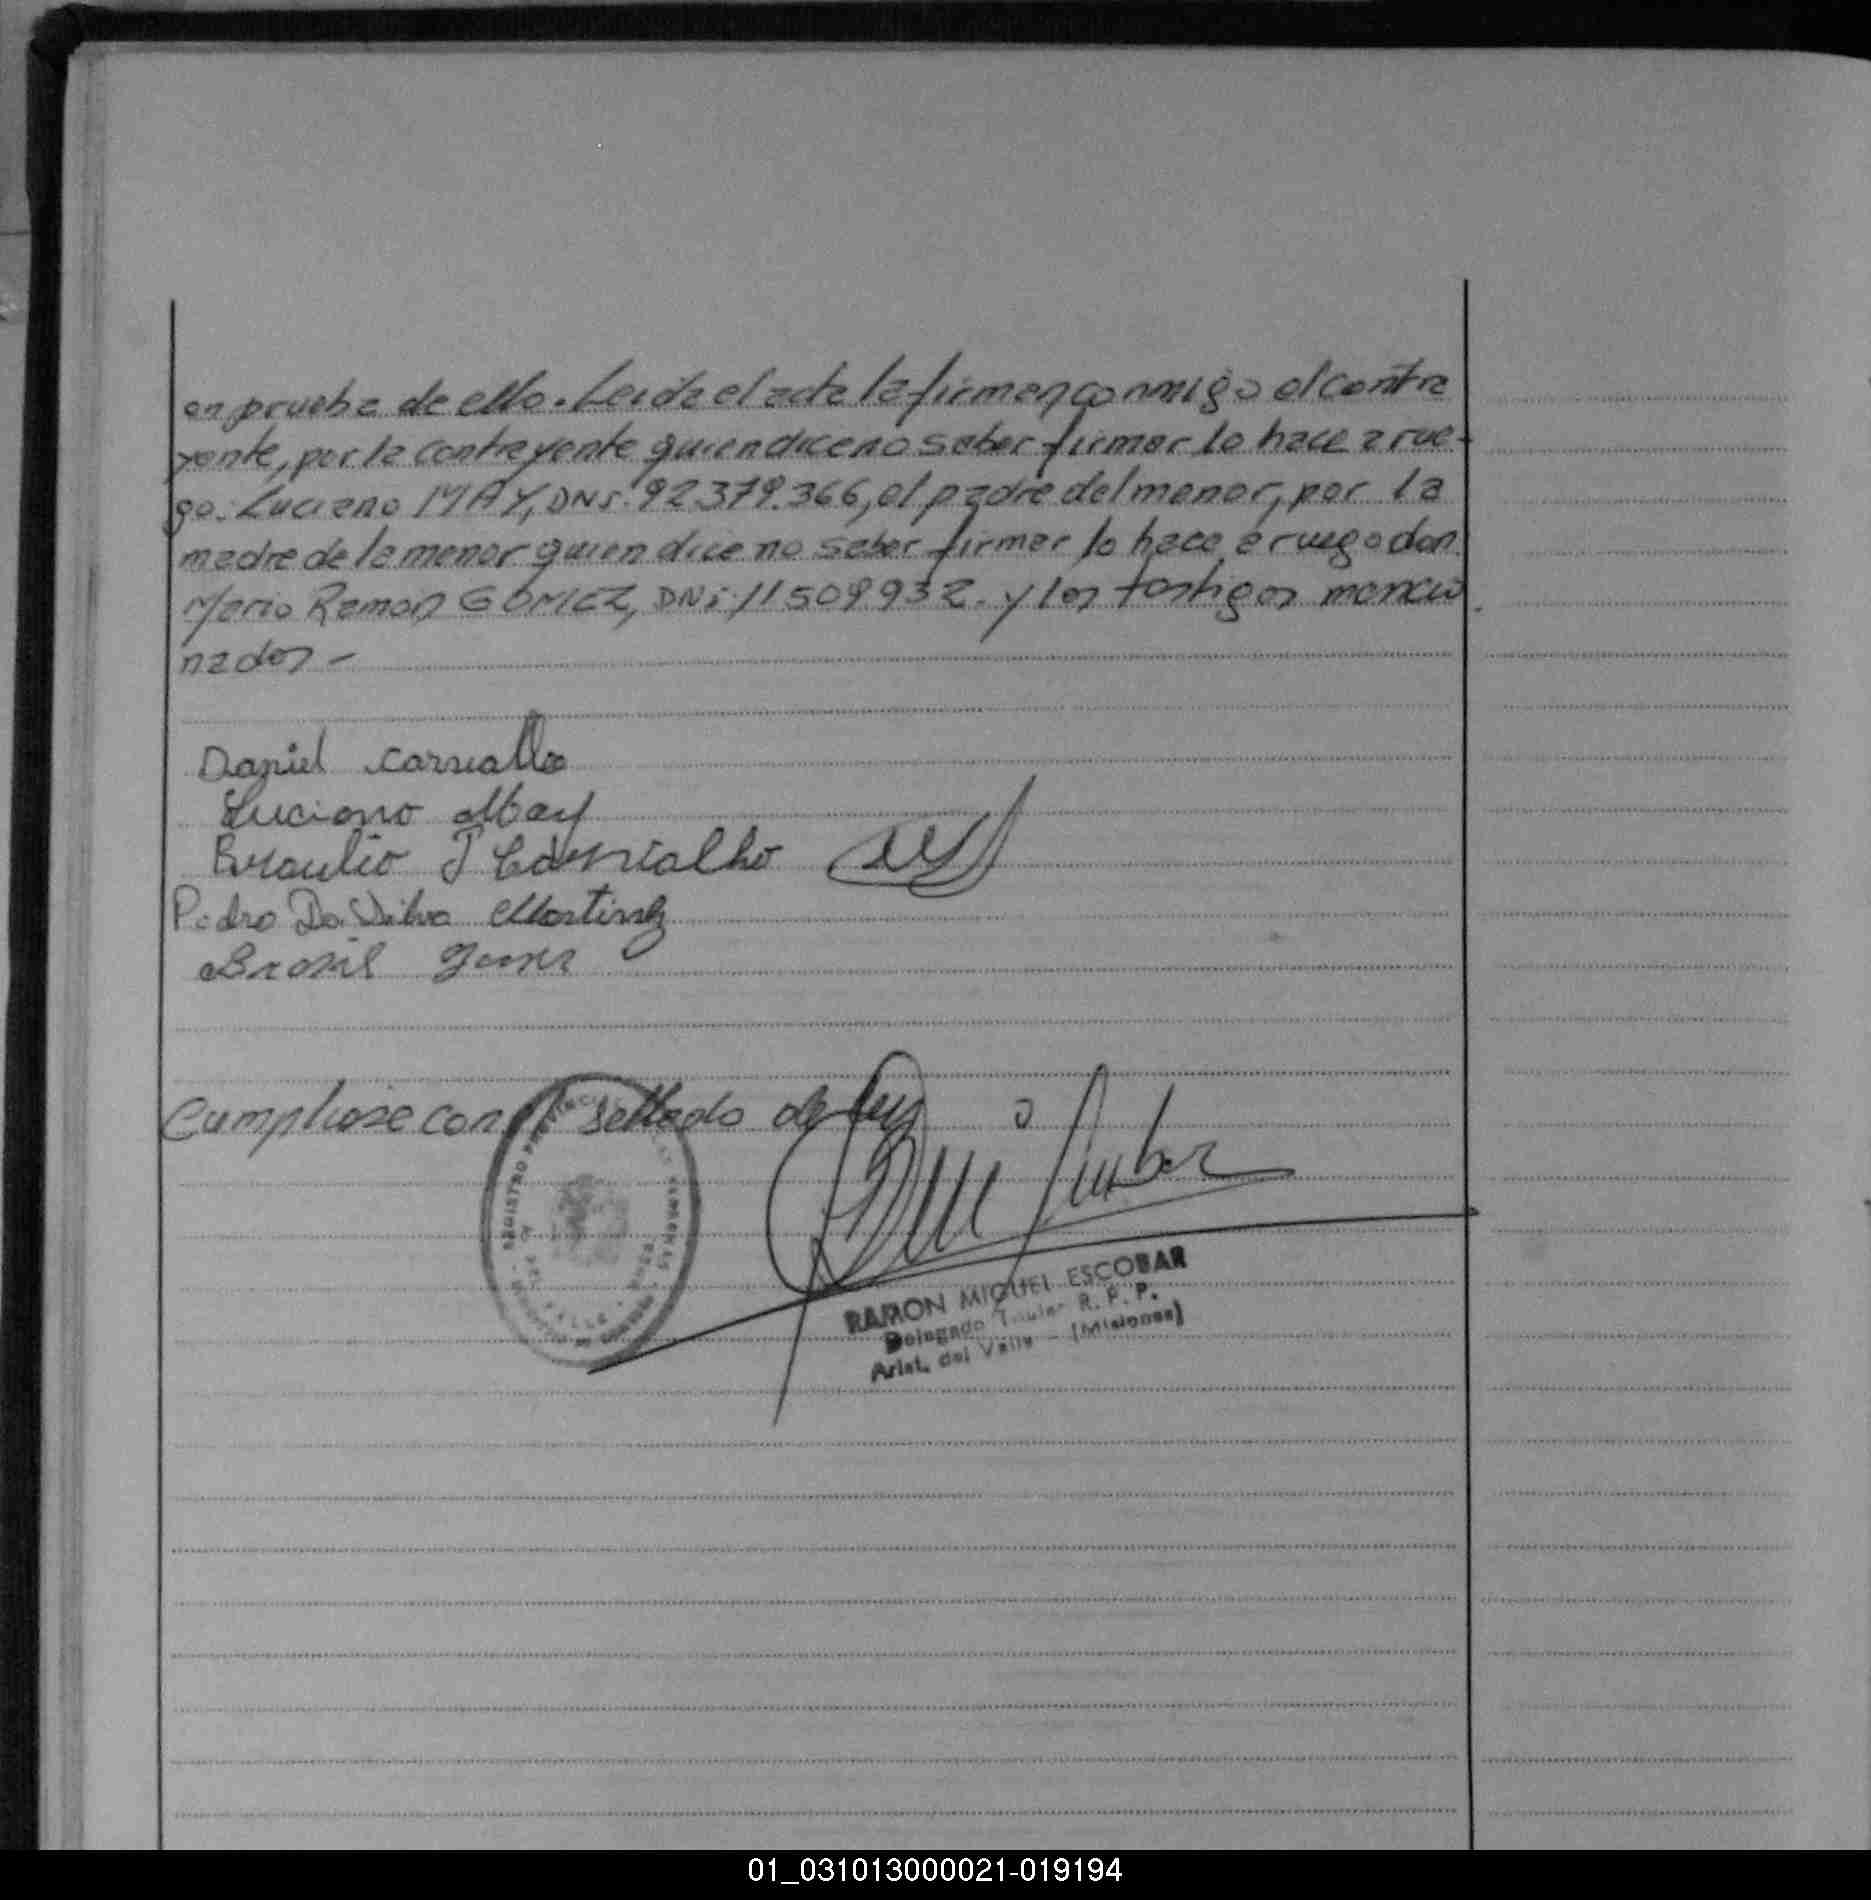 en prueba de ello. Leída el acta la firman conmigo el contra
yente, por la contrayente quien dice no saber firmar lo hace a rue-
go: Luciano MAY, DNI. 92.379.366, el padre del menor, por la
madre de la menor quien dice no saber firmar lo hace a ruego don
Mario Ramon GOMEZ, DNi: 11509932. y los testigos mencio
nados -
Daniel Carvallo
Luciano May
Braulio J Carvialho
Pedro Da Silva Martinez
Brasil
Cumpliose con el sellado de ley
REGISTRO PROVINCIAL DE LAS PERSONAS
RAMON MIGUEL ESCOBAR
Delegado Titular R. P. P.
Arist. del Valle - (Misiones)
01_031013000021-019194